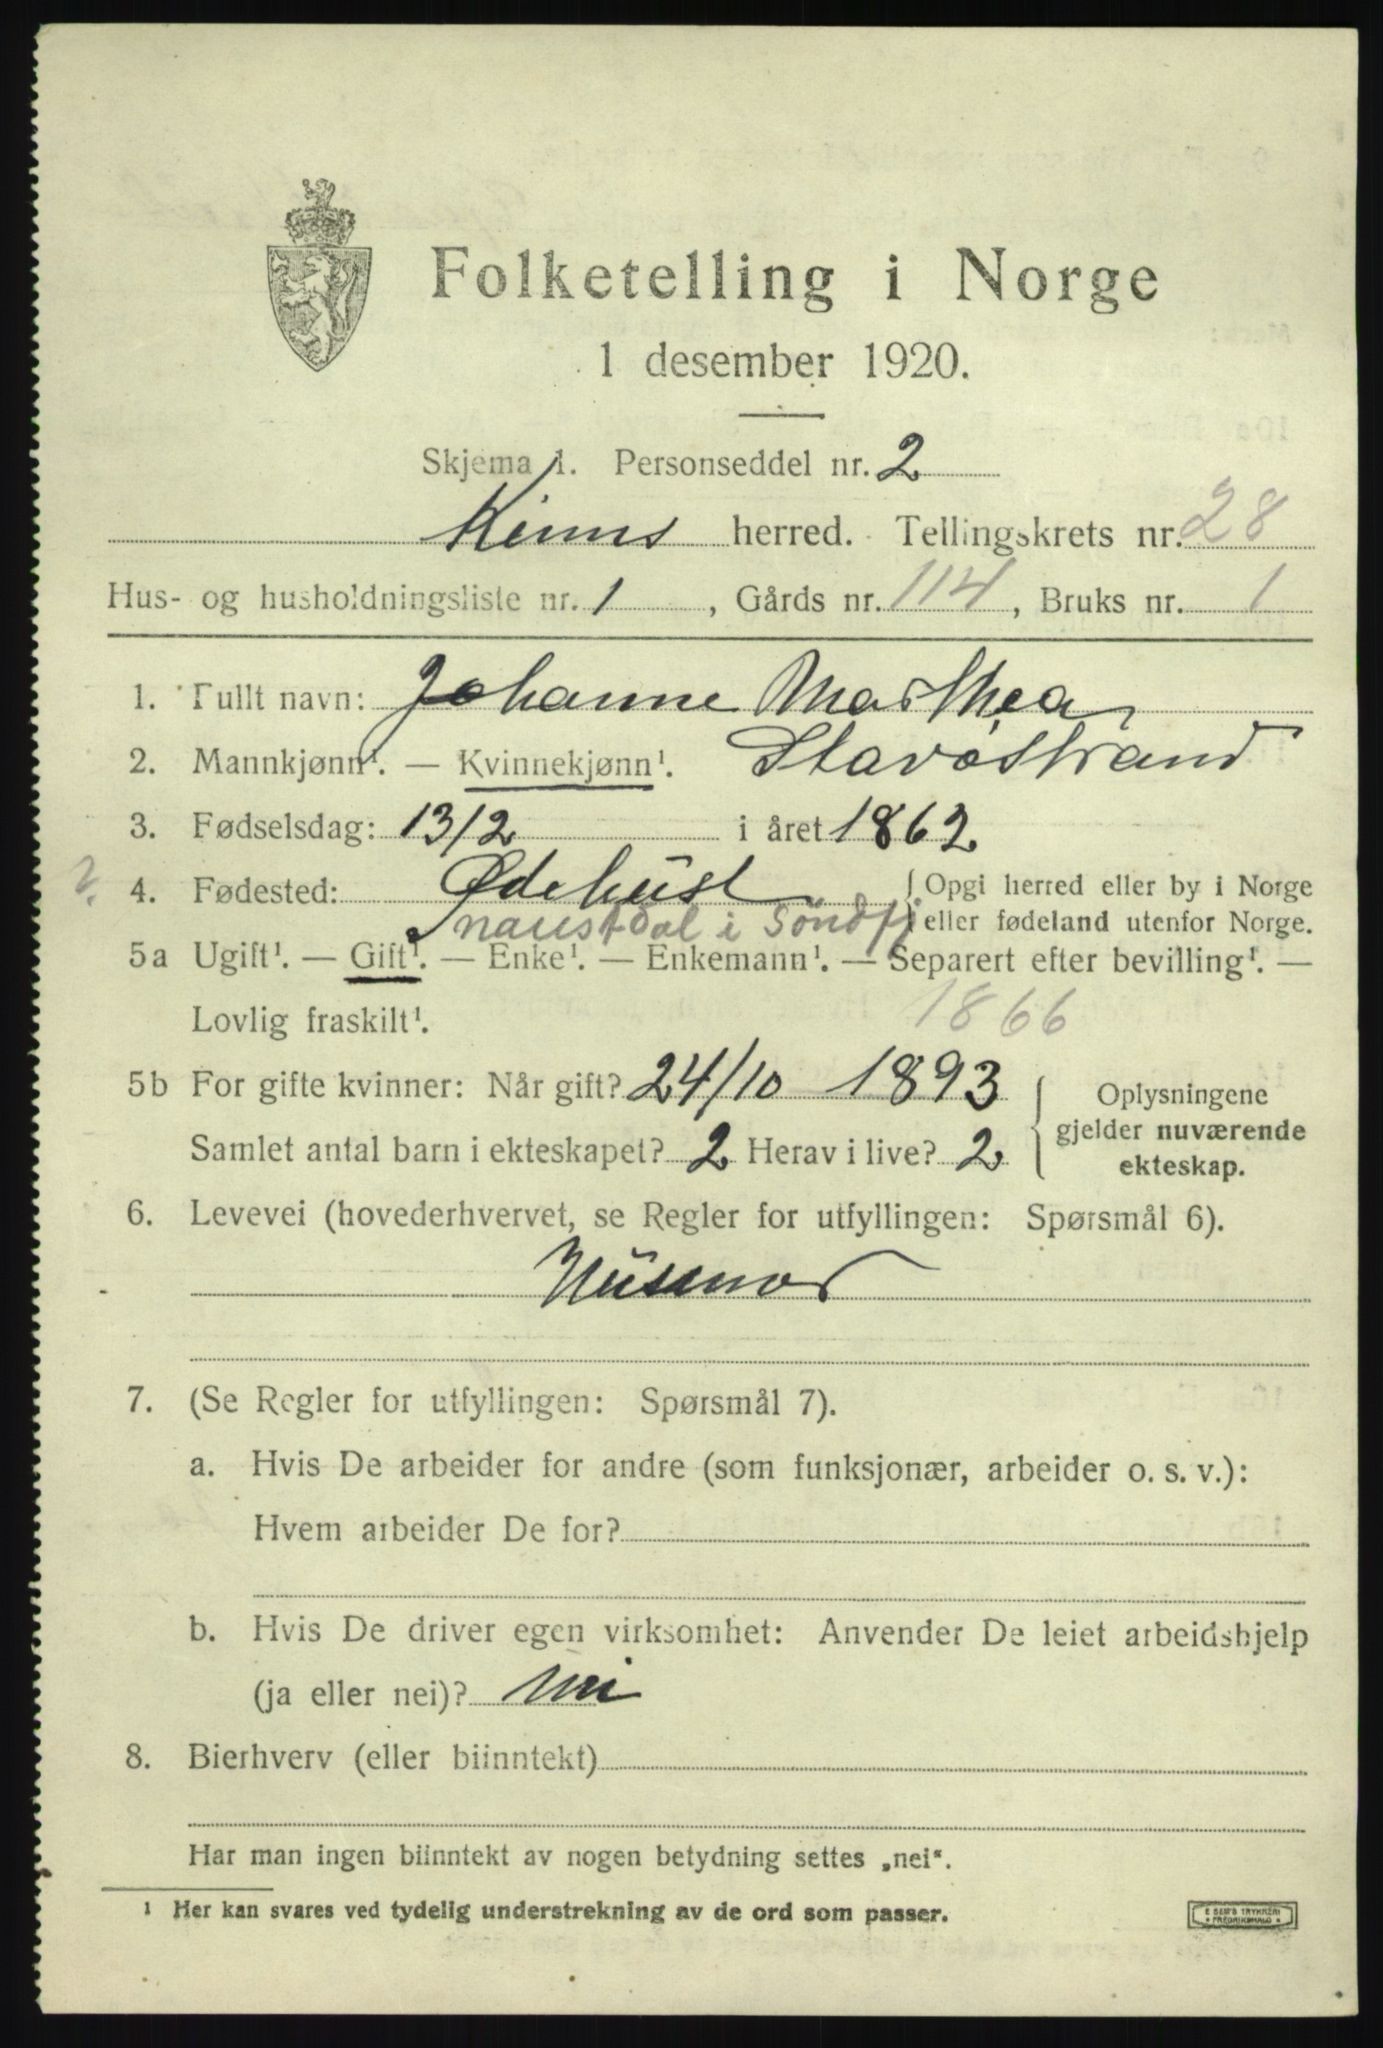 Folketelling i Norge
1 desember 1920.
Skjema 1. Personseddel nr. 2
Kinns herred. Tellingskrets nr. 28
Hus- og husholdningsliste nr. 1, Gårds nr. 114, Bruks nr. 1
1. Fullt navn: Johanne Marthea
2. Mannkjønn¹. — Kvinnekjønn¹. Stavøstrand
3. Fødselsdag: 13/2 i året 1862
? 4. Fødested: Ødehusl { Opgi herred eller by i Norge
naustdal i Söndfj eller fødeland utenfor Norge.
5a Ugift¹. — Gift¹. — Enke¹. — Enkemann¹. — Separert efter bevilling¹. —
Lovlig fraskilt¹. 1866
5b For gifte kvinner: Når gift? 24/10 1893 { Oplysningene
gjelder nuværende
Samlet antal barn i ekteskapet? 2 Herav i live? 2
ekteskap.
6. Levevei (hovederhvervet, se Regler for utfyllingen: Spørsmål 6).
Husmor
7. (Se Regler for utfyllingen: Spørsmål 7).
a. Hvis De arbeider for andre (som funksjonær, arbeider o. s. v.):
Hvem arbeider De for?
b. Hvis De driver egen virksomhet: Anvender De leiet arbeidshjelp
(ja eller nei)? nei
8. Bierhverv (eller biinntekt)
Har man ingen biinntekt av nogen betydning settes „nei“.
¹ Her kan svares ved tydelig understrekning av de ord som passer.
E SEM'S TRYKKERI
FREDRIKSHALD